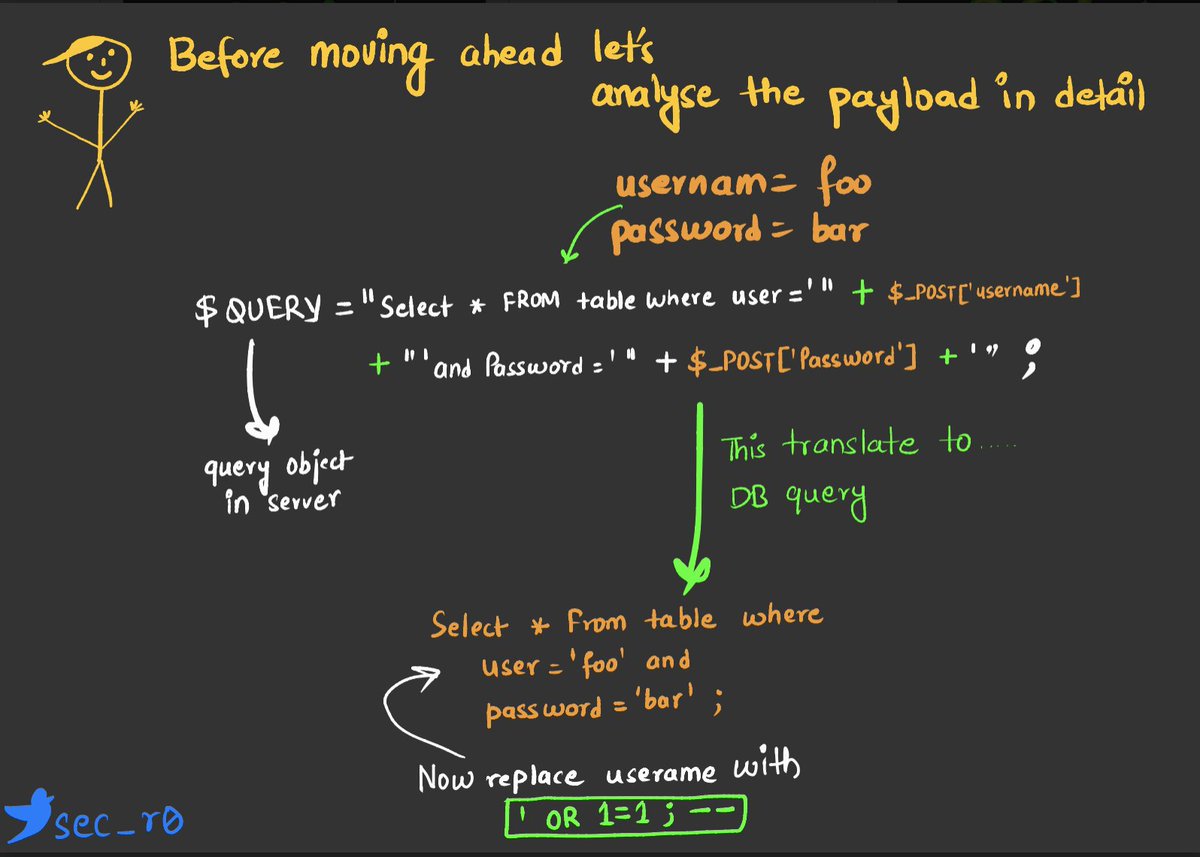 Before moving ahead let's
analyse the payload in detail
usernam= foo
password = bar
$QUERY = "Select * FROM table where user='" + $_POST['username']
+ "' and Password='" + $_POST['Password'] + '" ;
query object
in server
This translate to......
DB query
Select * From table where
user = 'foo' and
password = 'bar' ;
Now replace userame with
' OR 1=1 ; --
sec_r0